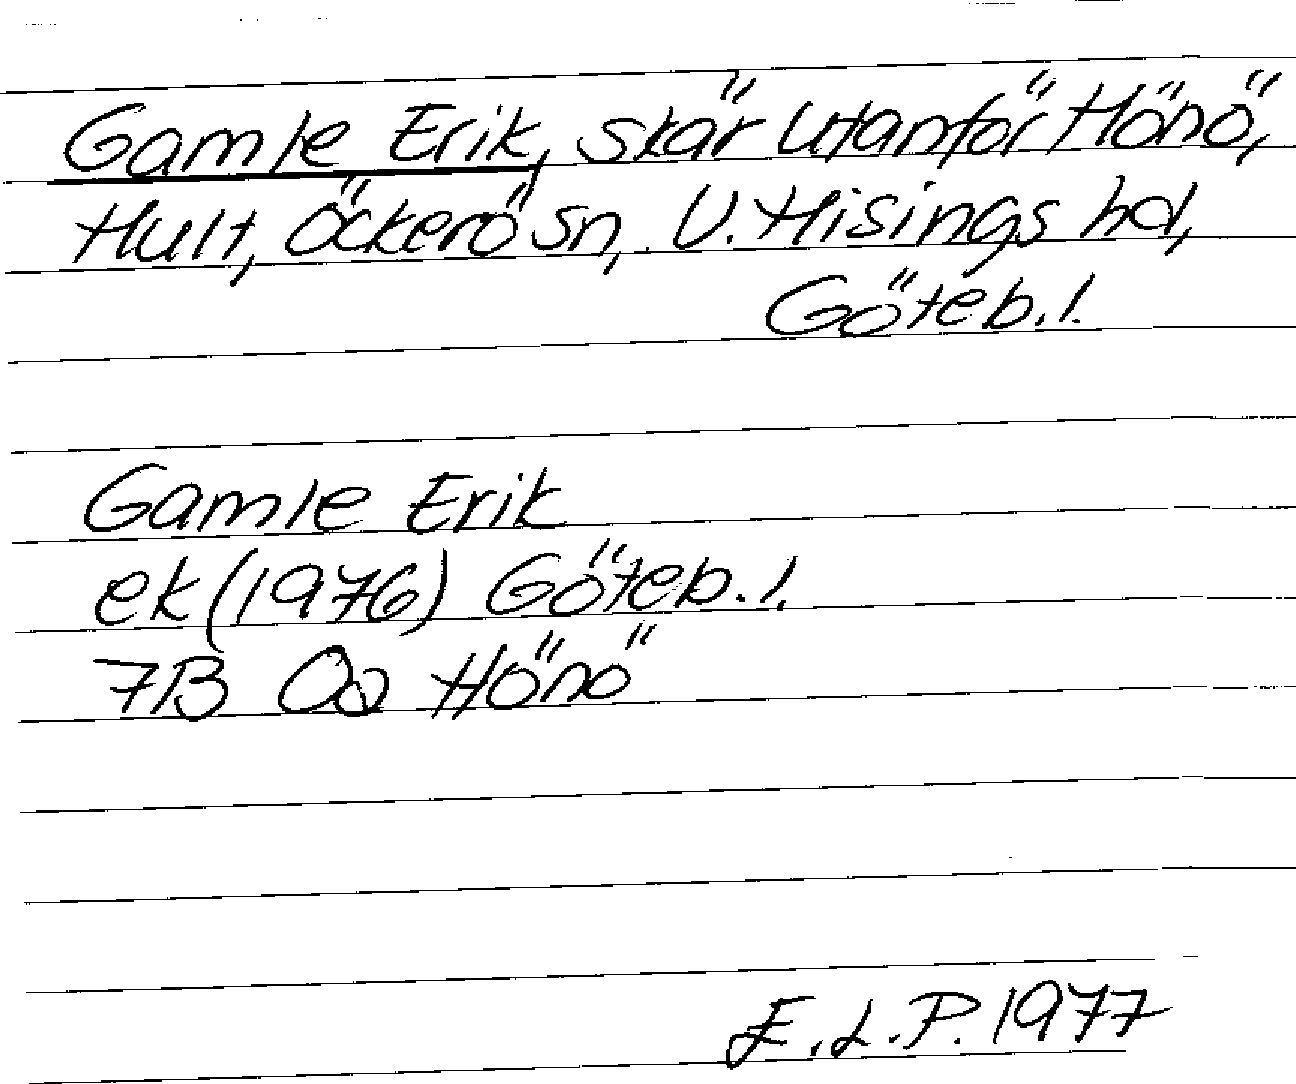 Gamle Erik, skär utanför Hönö,
Hult, Öckerö sn, V. Hisings hd,
Göteb. l.
Gamle Erik
ek (1976) Göteb. l.
7B 0a Hönö
E.L.P. 1977